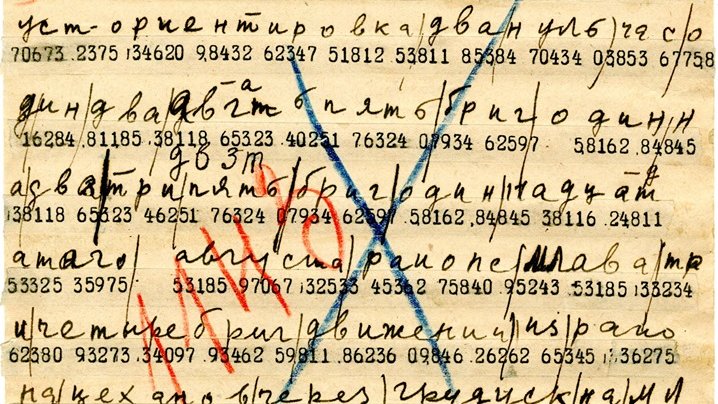 уст-ориентировка/два нуль/часо
70673 2375 34620 9.8432 62347 51812 53811 85384 70434 03853 67758
дин/два/
16284 81185 38118 65323 40251 76324 07934 62597 58162 84845
три/пять/бриг один надцат
38118 65323 46251 76324 07934 62597 58162 84845 38116 24811
августа/районе/млава/тр
53325 35975 53185 97067 32533 45362 75840 95243 53185 33234
МИЗ
и/четире бриг/движении/из/райо
62380 93273 34097 93462 59811 86236 09846 26262 65345 136275
на/цехднов/через/грудуск/на/мл